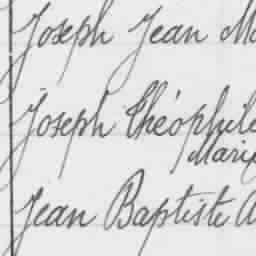 Joseph Jean Ma
Joseph Théophile
Marie
Jean Baptiste A